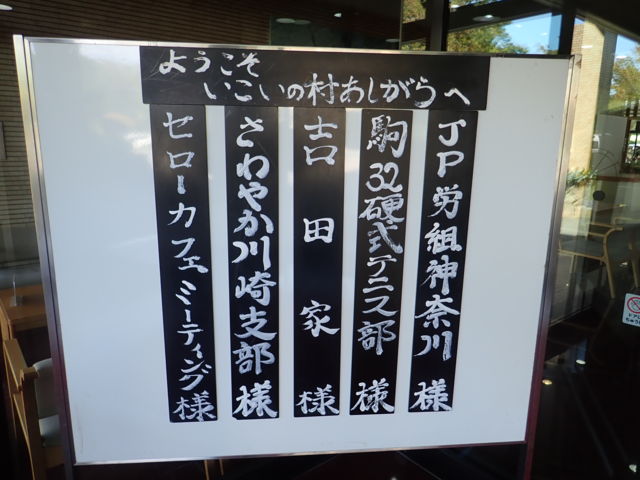 ようこそ
いこいの村あしがらへ
JP労組神奈川 様
駒32硬式テニス部 様
吉田家 様
さわやか川崎支部 様
セローカフェミーティング 様